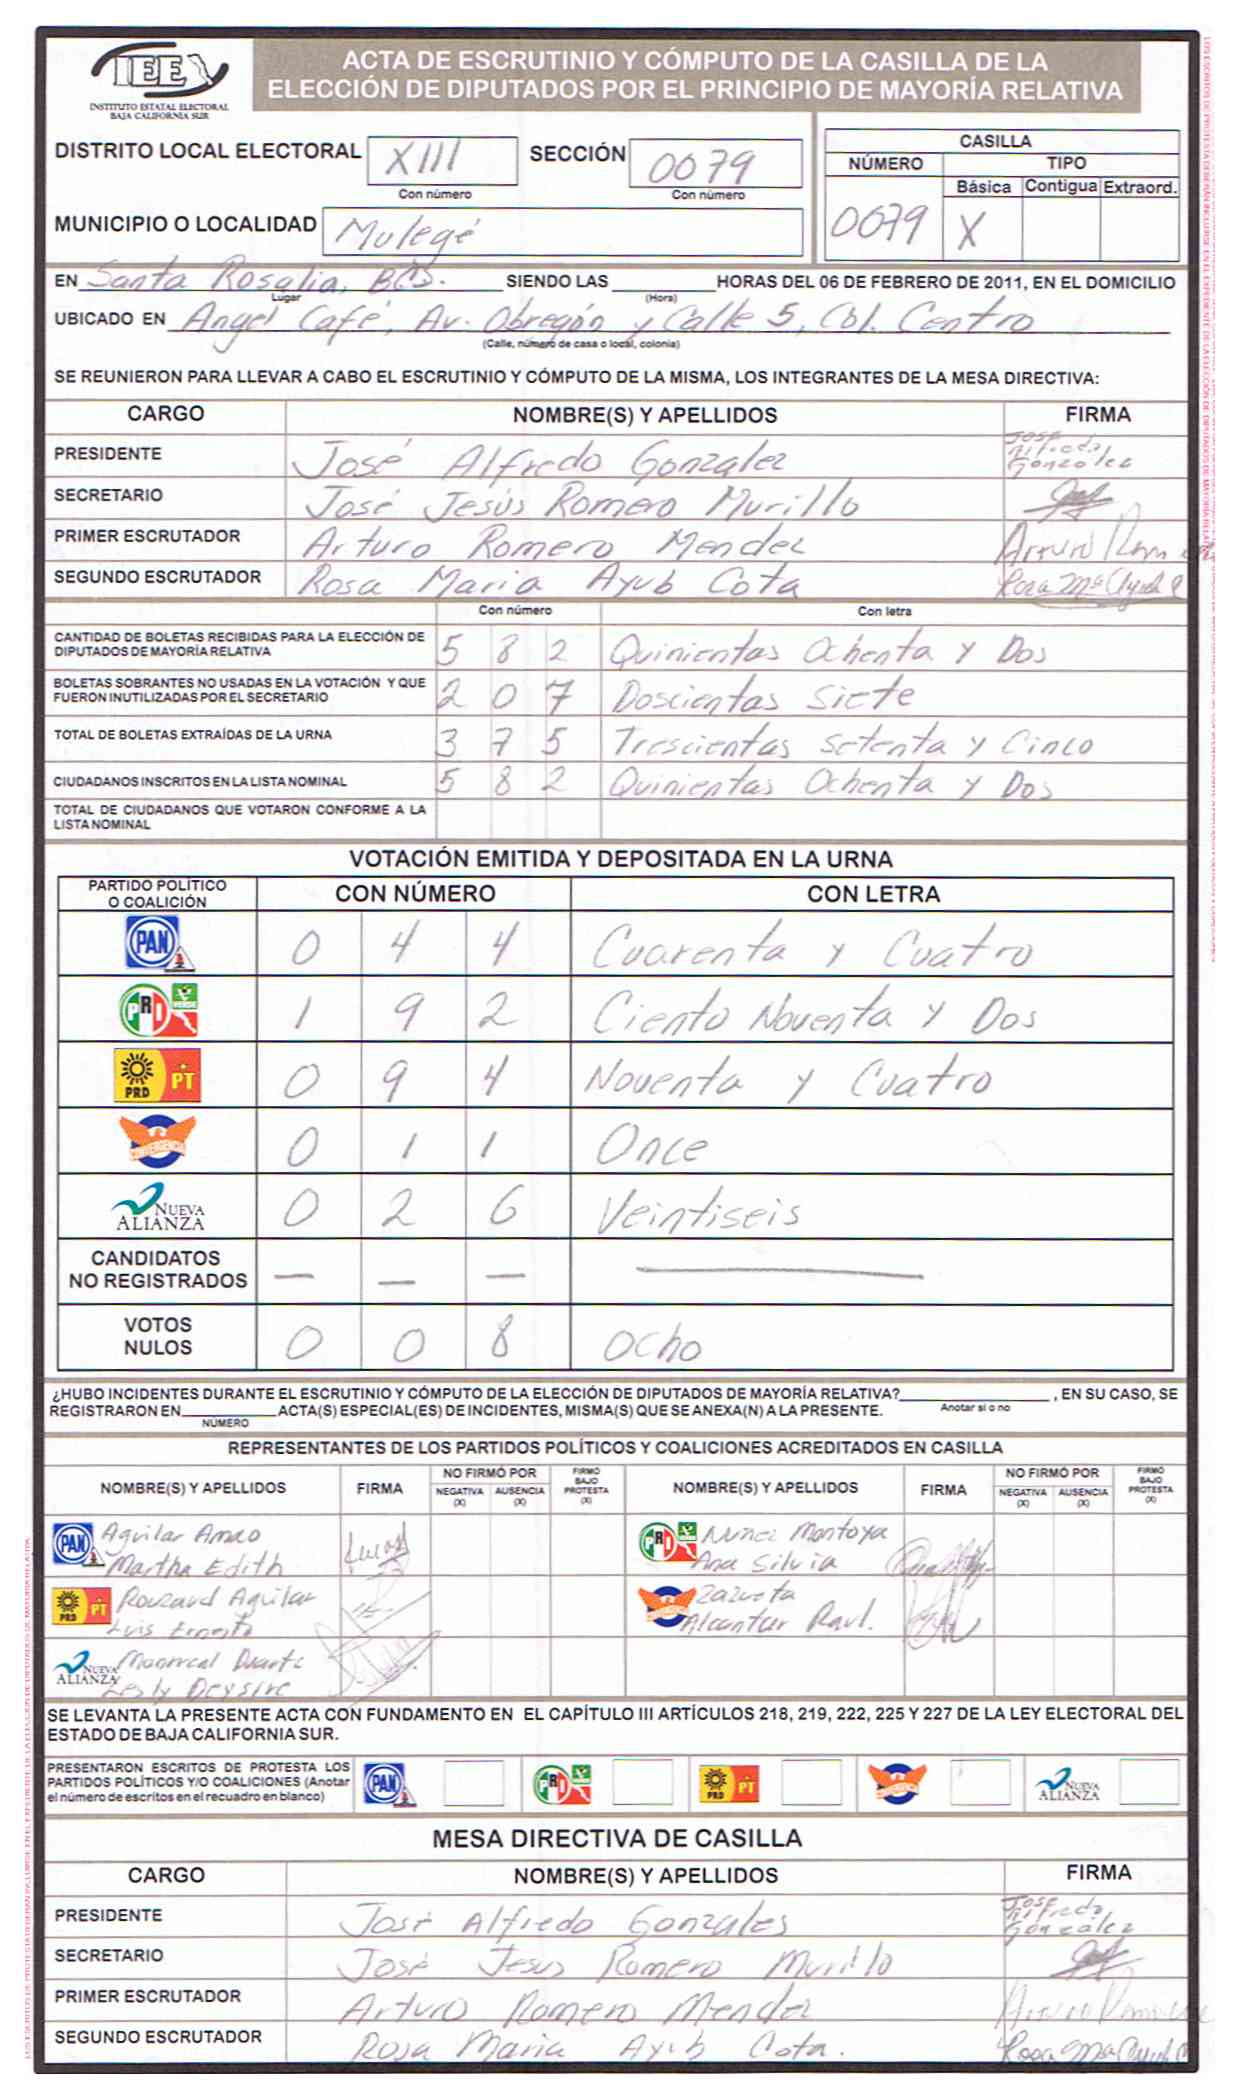 IEE
INSTITUTO ESTATAL ELECTORAL
BAJA CALIFORNIA SUR
ACTA DE ESCRUTINIO Y CÓMPUTO DE LA CASILLA DE LA
ELECCIÓN DE DIPUTADOS POR EL PRINCIPIO DE MAYORÍA RELATIVA
DISTRITO LOCAL ELECTORAL XIII SECCIÓN 0079
Con número Con número
MUNICIPIO O LOCALIDAD Mulegé
CASILLA
NÚMERO TIPO
Básica Contigua Extraord.
0079 X
EN Santa Rosalia, BCS. SIENDO LAS HORAS DEL 06 DE FEBRERO DE 2011, EN EL DOMICILIO
Lugar (Hora)
UBICADO EN Angel Café, Av. Obregón y Calle 5, Col. Centro
(Calle, número de casa o local, colonia)
SE REUNIERON PARA LLEVAR A CABO EL ESCRUTINIO Y CÓMPUTO DE LA MISMA, LOS INTEGRANTES DE LA MESA DIRECTIVA:
CARGO NOMBRE(S) Y APELLIDOS FIRMA
PRESIDENTE José Alfredo Gonzalez José Alfredo González
SECRETARIO José Jesús Romero Murillo
PRIMER ESCRUTADOR Arturo Romero Mendez Arturo
SEGUNDO ESCRUTADOR Rosa Maria Ayub Cota Rosa Mª Ayub C
Con número Con letra
CANTIDAD DE BOLETAS RECIBIDAS PARA LA ELECCIÓN DE
DIPUTADOS DE MAYORÍA RELATIVA 5 8 2 Quinientas Ochenta y Dos
BOLETAS SOBRANTES NO USADAS EN LA VOTACIÓN Y QUE
FUERON INUTILIZADAS POR EL SECRETARIO 2 0 7 Doscientas Siete
TOTAL DE BOLETAS EXTRAÍDAS DE LA URNA 3 7 5 Trescientas Setenta y Cinco
CIUDADANOS INSCRITOS EN LA LISTA NOMINAL 5 8 2 Quinientas Ochenta y Dos
TOTAL DE CIUDADANOS QUE VOTARON CONFORME A LA
LISTA NOMINAL
VOTACIÓN EMITIDA Y DEPOSITADA EN LA URNA
PARTIDO POLÍTICO
O COALICIÓN CON NÚMERO CON LETRA
PAN 0 4 4 Cuarenta y Cuatro
PRI VERDE 1 9 2 Ciento Noventa y Dos
PRD PT 0 9 4 Noventa y Cuatro
CONVERGENCIA 0 1 1 Once
NUEVA ALIANZA 0 2 6 Veintiseis
CANDIDATOS
NO REGISTRADOS — — —
VOTOS
NULOS 0 0 8 Ocho
¿HUBO INCIDENTES DURANTE EL ESCRUTINIO Y CÓMPUTO DE LA ELECCIÓN DE DIPUTADOS DE MAYORÍA RELATIVA? , EN SU CASO, SE
Anotar si o no
REGISTRARON EN ACTA(S) ESPECIAL(ES) DE INCIDENTES, MISMA(S) QUE SE ANEXA(N) A LA PRESENTE.
NÚMERO
REPRESENTANTES DE LOS PARTIDOS POLÍTICOS Y COALICIONES ACREDITADOS EN CASILLA
NOMBRE(S) Y APELLIDOS FIRMA NO FIRMÓ POR NEGATIVA (X) AUSENCIA (X) FIRMÓ BAJO PROTESTA (X) NOMBRE(S) Y APELLIDOS FIRMA NO FIRMÓ POR NEGATIVA (X) AUSENCIA (X) FIRMÓ BAJO PROTESTA (X)
PAN Aguilar Amao
Martha Edith
PRI VERDE Nuñez Montoya
Ana Silvia
PRD PT Rouzaud Aguilar
Luis Ernesto
CONVERGENCIA Zazueta
Alcantar Raul.
NUEVA ALIANZA Monreal Duarte
Lesly Deysire
SE LEVANTA LA PRESENTE ACTA CON FUNDAMENTO EN EL CAPÍTULO III ARTÍCULOS 218, 219, 222, 225 Y 227 DE LA LEY ELECTORAL DEL
ESTADO DE BAJA CALIFORNIA SUR.
PRESENTARON ESCRITOS DE PROTESTA LOS
PARTIDOS POLÍTICOS Y/O COALICIONES (Anotar
el número de escritos en el recuadro en blanco)
PAN PRI PRD PT CONVERGENCIA NUEVA ALIANZA
MESA DIRECTIVA DE CASILLA
CARGO NOMBRE(S) Y APELLIDOS FIRMA
PRESIDENTE José Alfredo Gonzales José Alfredo González
SECRETARIO José Jesus Romero Murillo
PRIMER ESCRUTADOR Arturo Romero Mendez Arturo
SEGUNDO ESCRUTADOR Rosa Maria Ayub Cota. Rosa Mª Ayub C